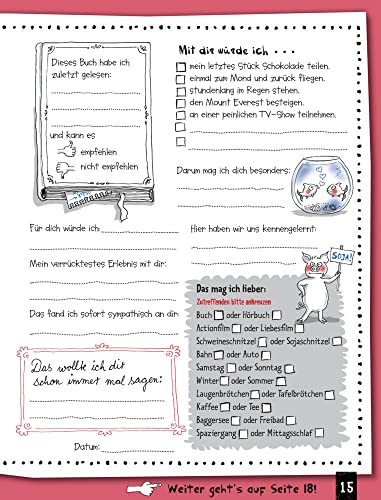 Dieses Buch habe ich
zuletzt gelesen:
und kann es
empfehlen
nicht empfehlen
Mit dir würde ich . . .
mein letztes Stück Schokolade teilen.
einmal zum Mond und zurück fliegen.
stundenlang im Regen stehen.
den Mount Everest besteigen.
an einer peinlichen TV-Show teilnehmen.
Darum mag ich dich besonders:
Für dich würde ich
Hier haben wir uns kennengelernt:
Mein verrücktestes Erlebnis mit dir:
Das fand ich sofort sympathisch an dir:
SOJA!
Das mag ich lieber:
Zutreffendes bitte ankreuzen
Buch oder Hörbuch
Actionfilm oder Liebesfilm
Schweineschnitzel oder Sojaschnitzel
Bahn oder Auto
Samstag oder Sonntag
Winter oder Sommer
Laugenbrötchen oder Tafelbrötchen
Kaffee oder Tee
Baggersee oder Freibad
Spaziergang oder Mittagsschlaf
Das wollte ich dir
schon immer mal sagen:
Datum:
Weiter geht's auf Seite 18!
15